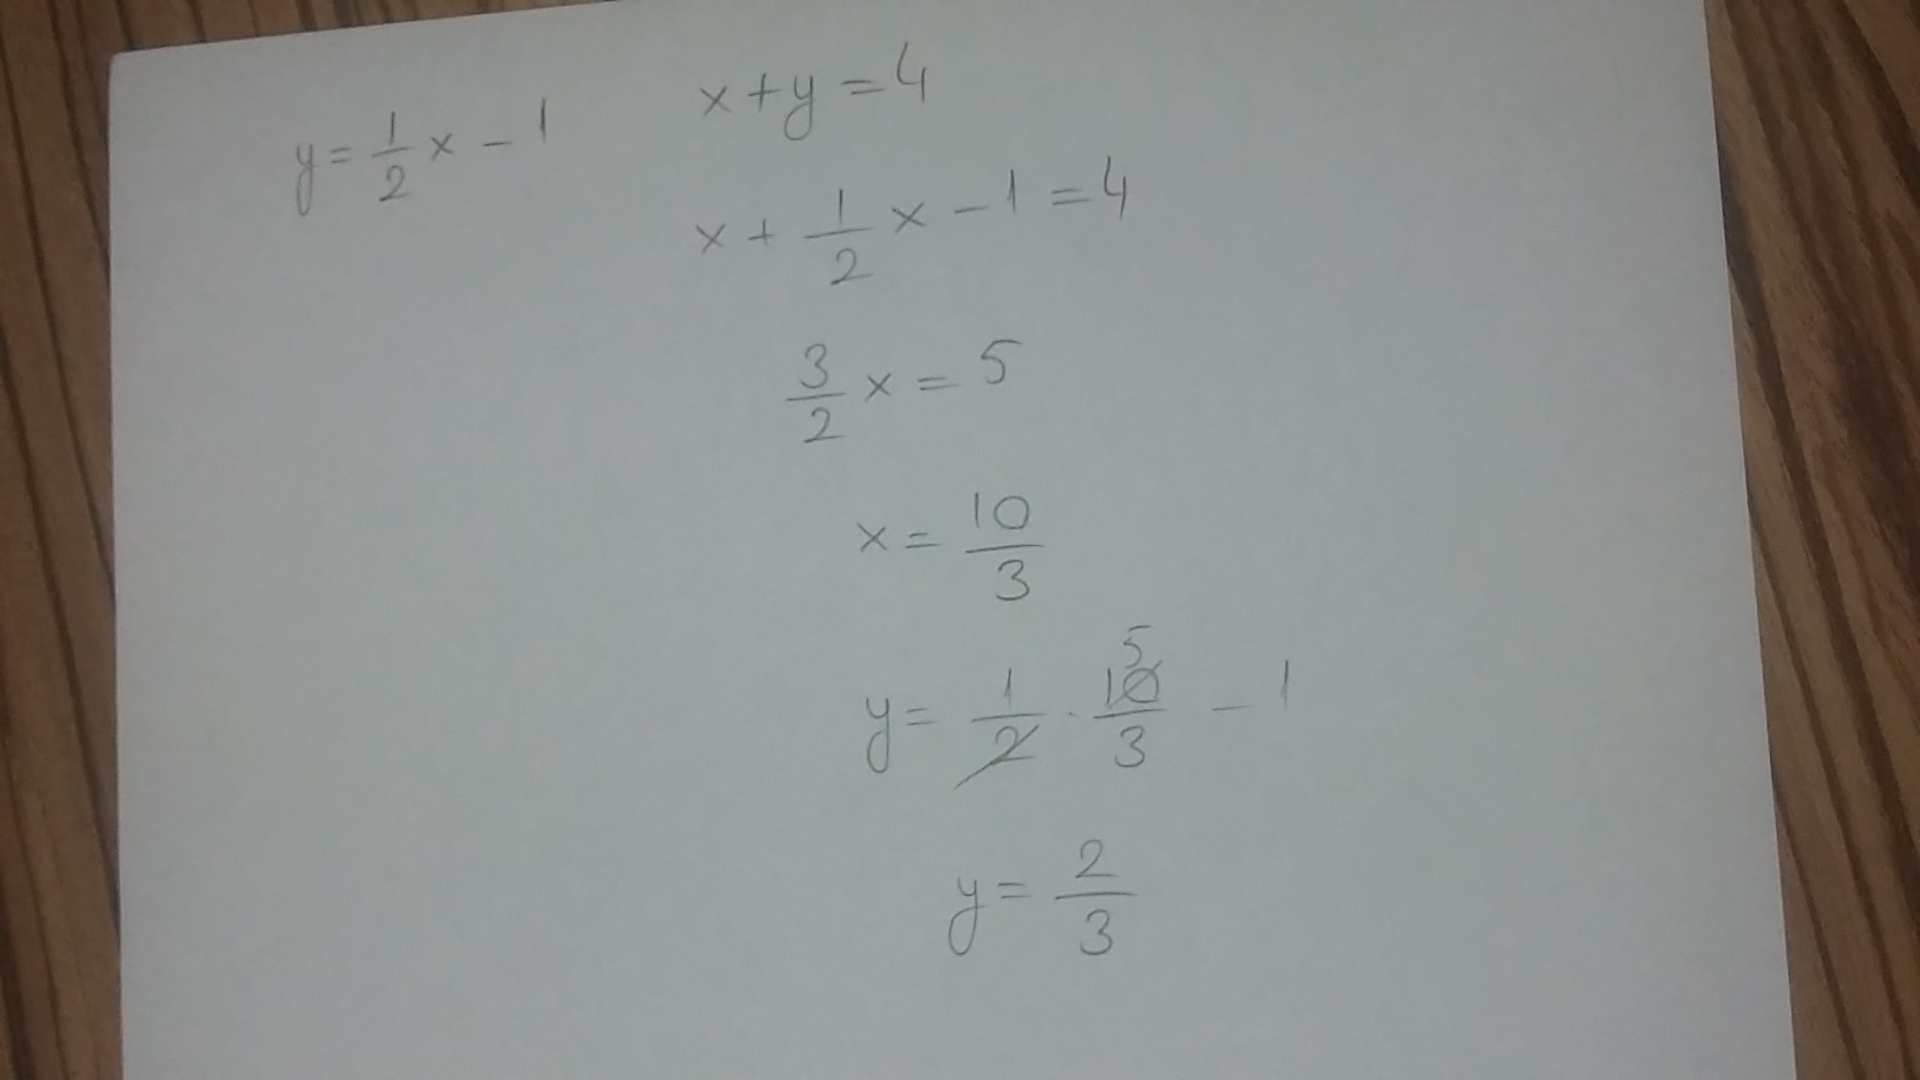 y = 1/2 x - 1
x + y = 4
x + 1/2 x - 1 = 4
3/2 x = 5
x = 10/3
5
y = 1/2 · 10/3 - 1
y = 2/3